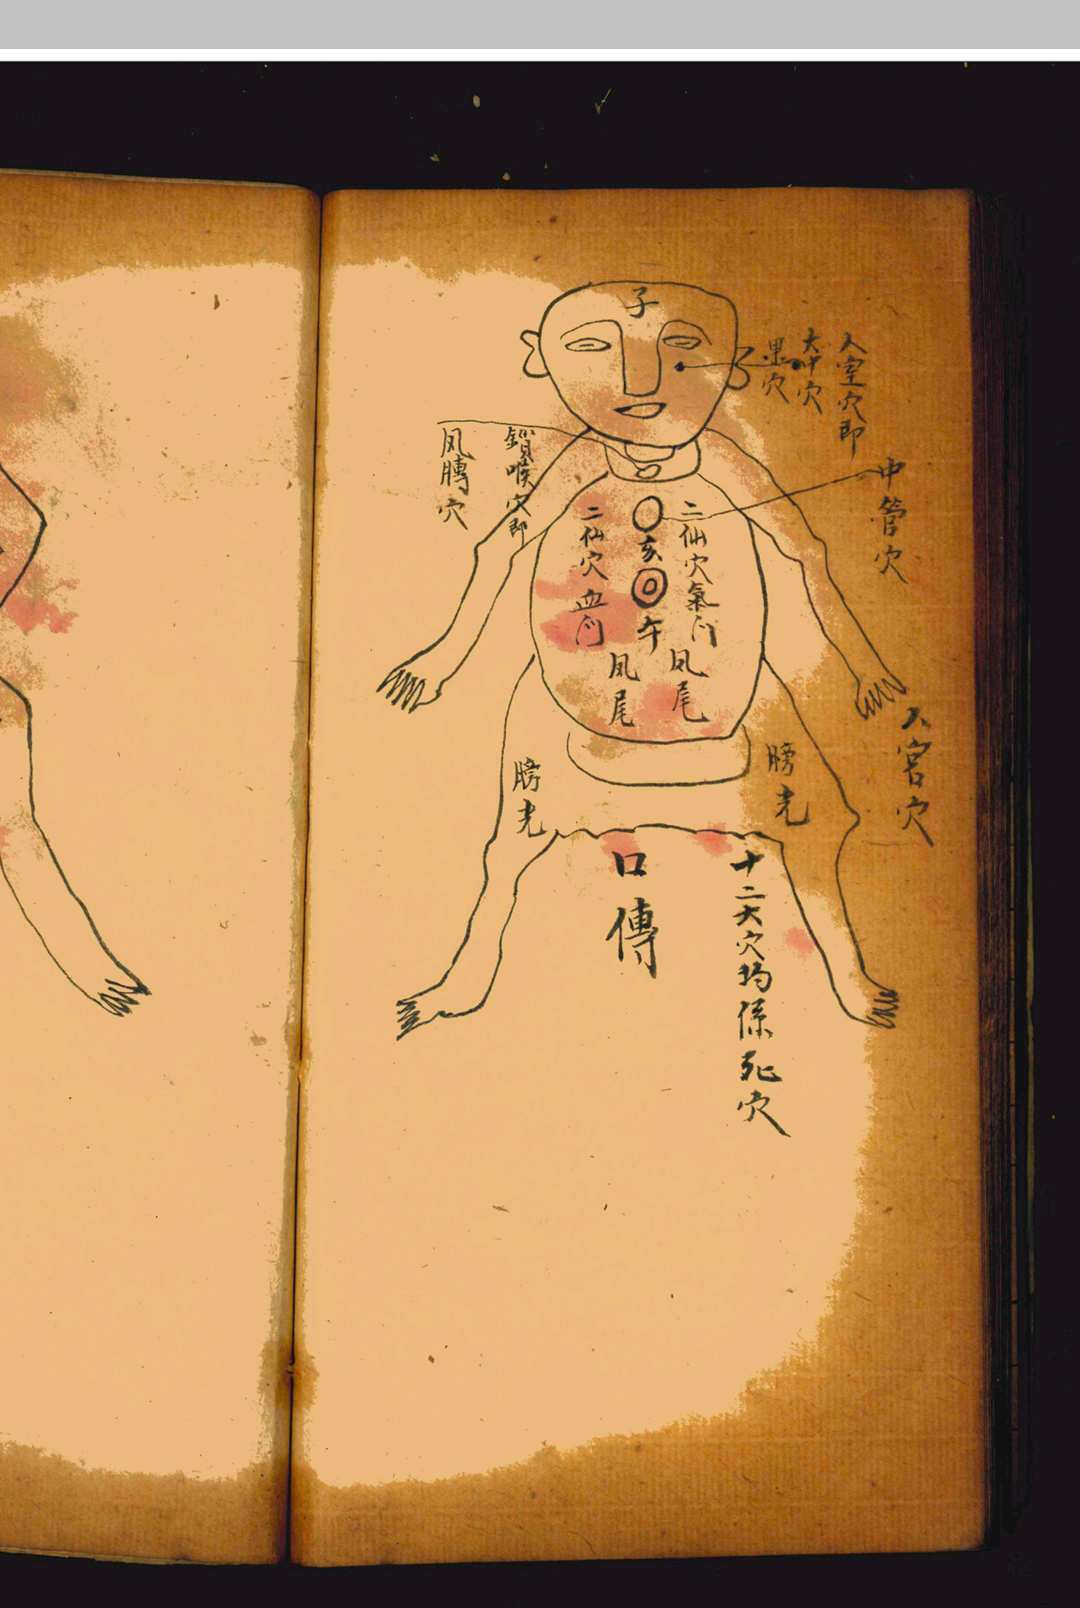 子
人室穴即
大中穴
黑穴
中管穴
鎖喉穴即
鳳膊穴
二仙穴氣门
亥
午
二仙穴血门
凤尾
凤尾
膀光
膀光
人宮穴
十二大穴均係死穴
口傳